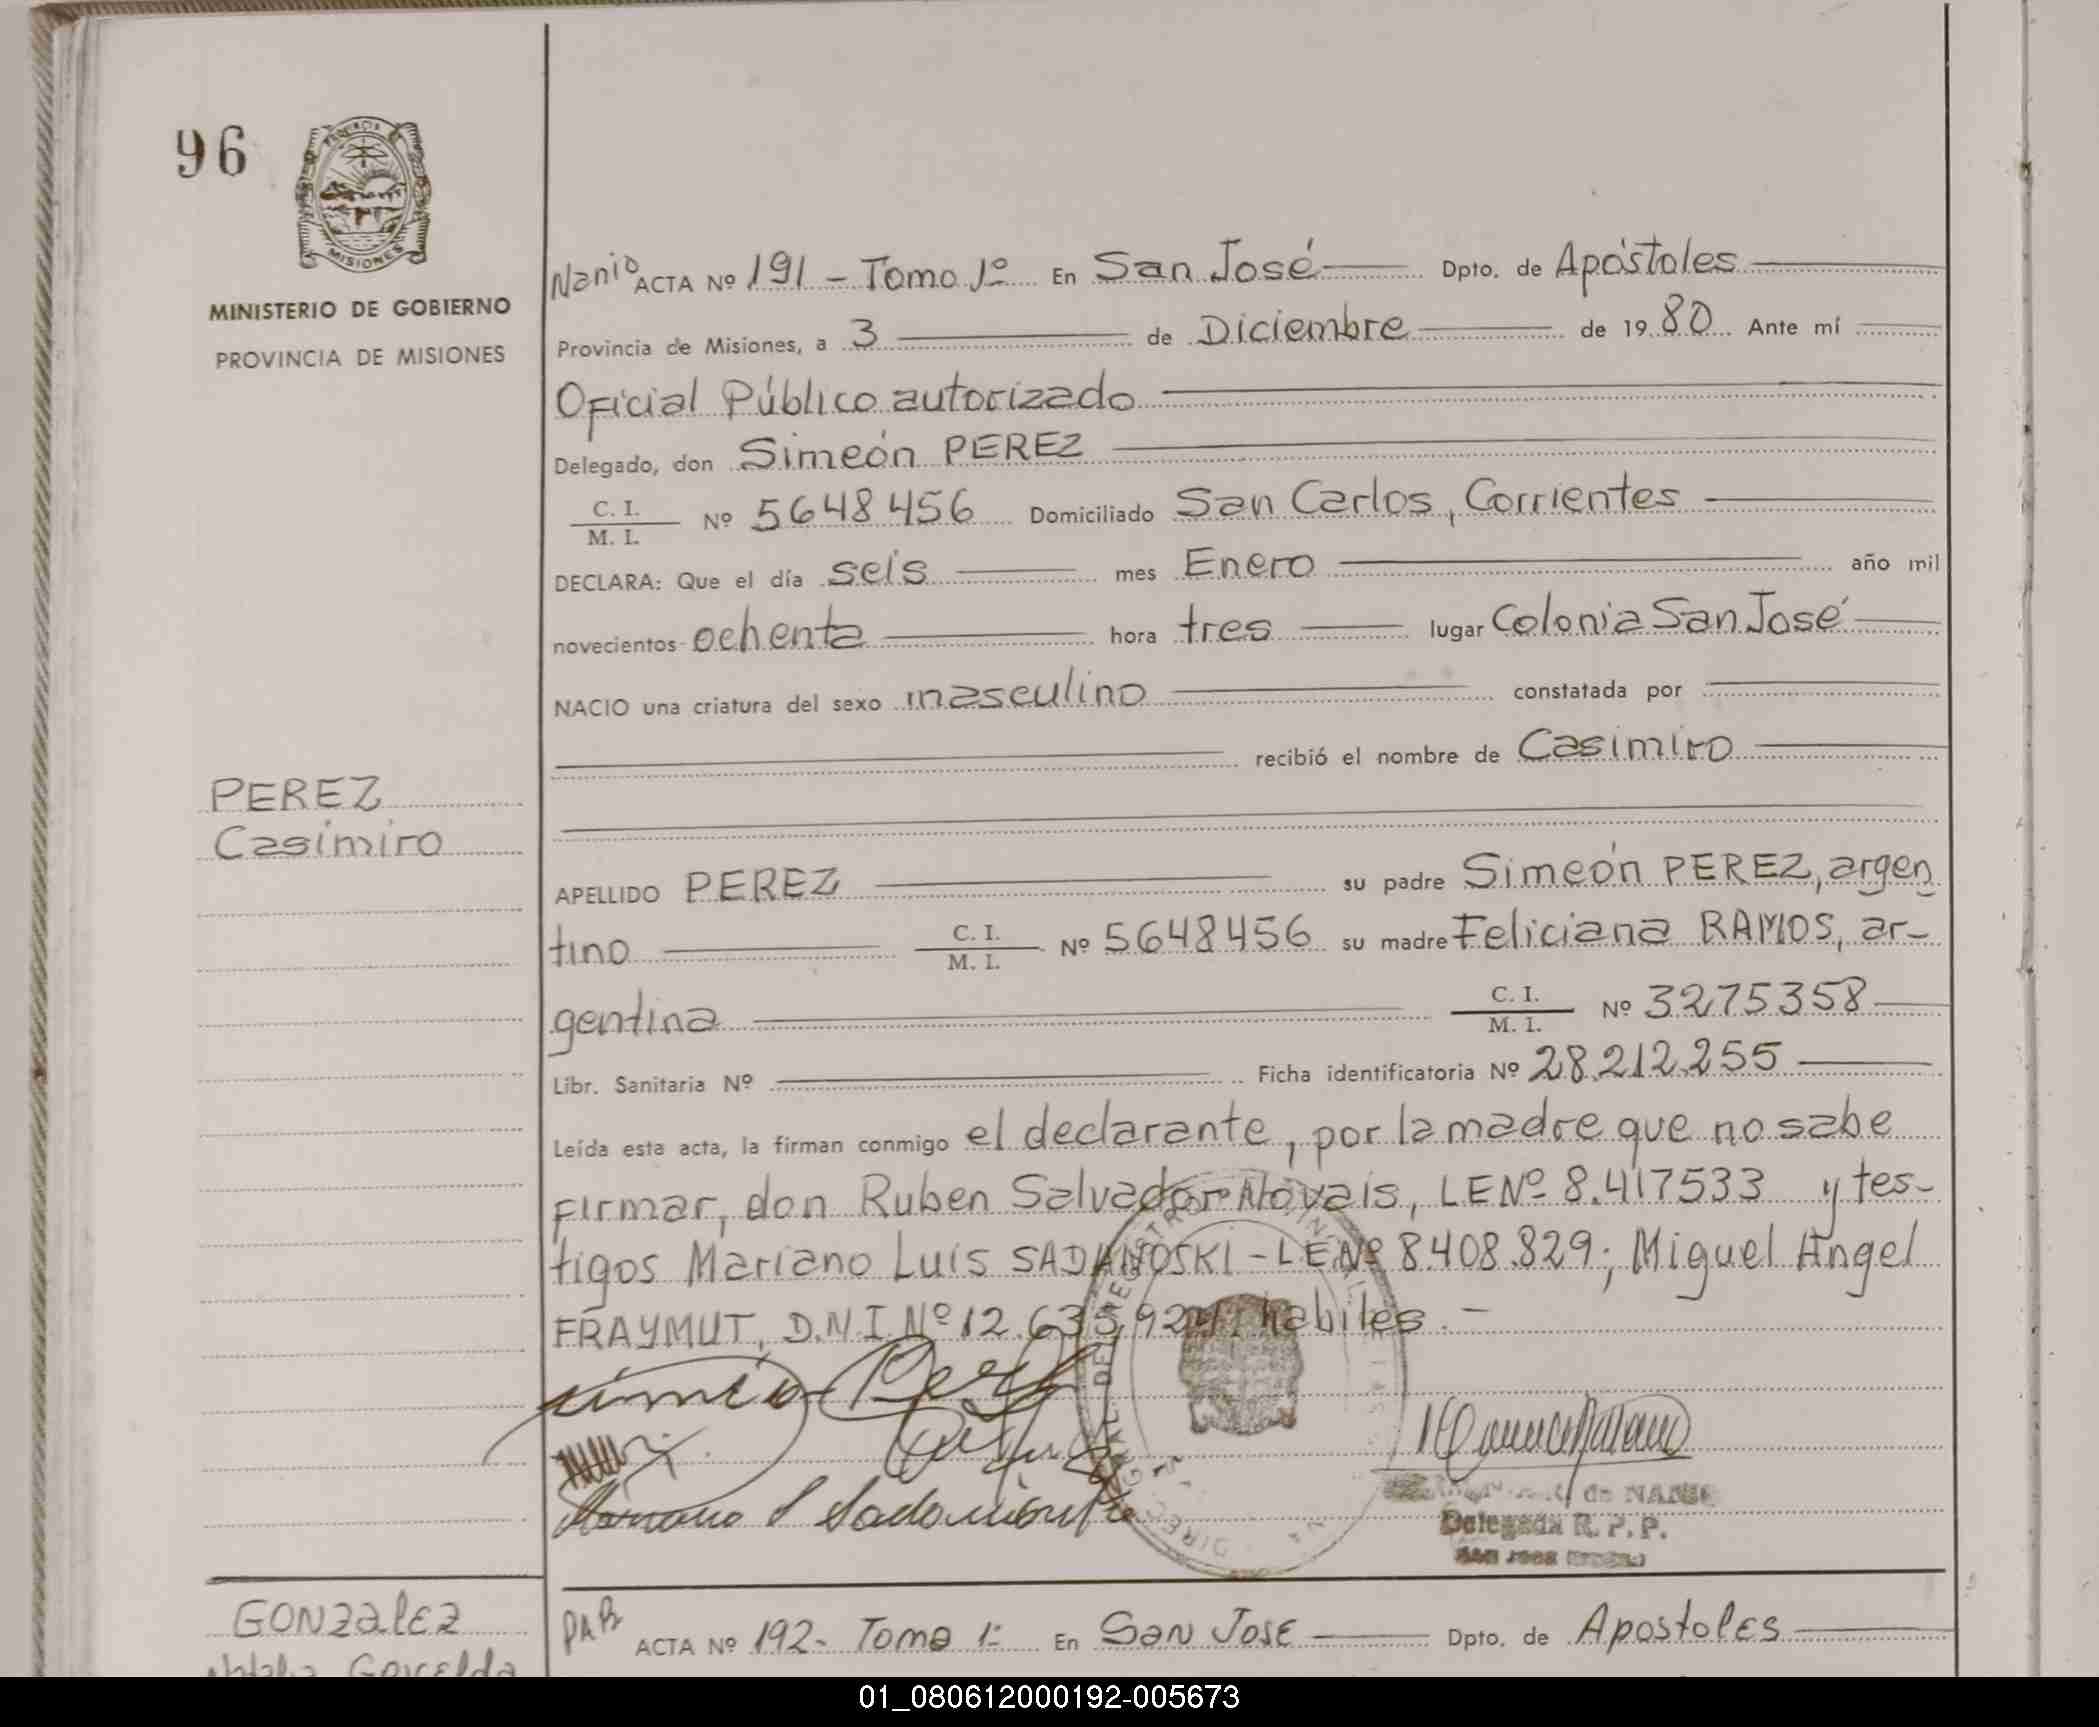 96
PROVINCIA
MISIONES
MINISTERIO DE GOBIERNO
PROVINCIA DE MISIONES
Nanio ACTA Nº 191 - Tomo 1º En San José Dpto. de Apóstoles
Provincia de Misiones, a 3 de Diciembre de 1980 Ante mí
Oficial Público autorizado
Delegado, don Simeón PEREZ
C. I.
M. I. Nº 5648456 Domiciliado San Carlos, Corrientes
DECLARA: Que el día seis mes Enero año mil
novecientos ochenta hora tres lugar Colonia San José
NACIO una criatura del sexo masculino constatada por
recibió el nombre de Casimiro
PEREZ
Casimiro
APELLIDO PEREZ su padre Simeón PEREZ, argen
tino C. I. M. I. Nº 5648456 su madre Feliciana RAMOS, ar-
gentina C. I. M. I. Nº 3275358
Libr. Sanitaria Nº Ficha identificatoria Nº 28.212.255
Leída esta acta, la firman conmigo el declarante, por la madre que no sabe
firmar, don Ruben Salvador Novais, LENº 8.417533 y tes-
tigos Mariano Luis SADANOSKI - LENº 8.408.829; Miguel Angel
FRAYMUT, D.N.I. Nº 12.635.924, habiles. -
de NANIO
Delegada R. P. P.
GONZALEZ
PAB ACTA Nº 192- Tomo 1º En San Jose Dpto. de Apostoles
01_080612000192-005673